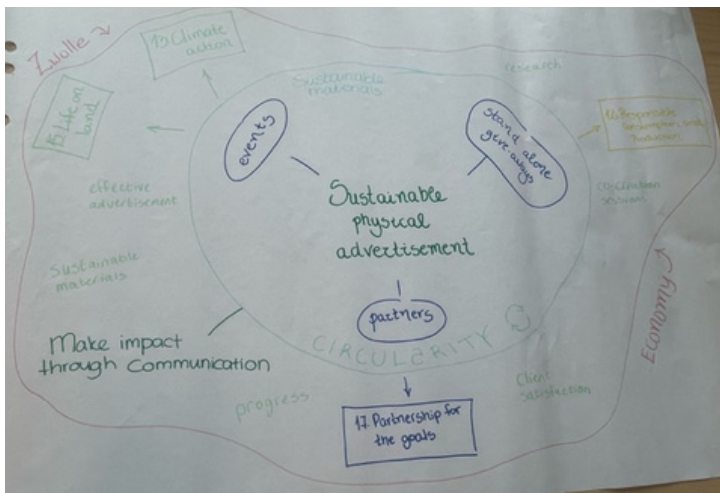 Zwolle
13 Climate
action
15 Life on
land
Sustainable
materials
research
events
stand alone
give-aways
Responsible
Consumption and
Production
effective
advertisement
Sustainable
physical
advertisement
sessions
Sustainable
materials
partners
CIRCULARITY
Economy
Make impact
through Communication
progress
Client
satisfaction
17. Partnership for
the goals